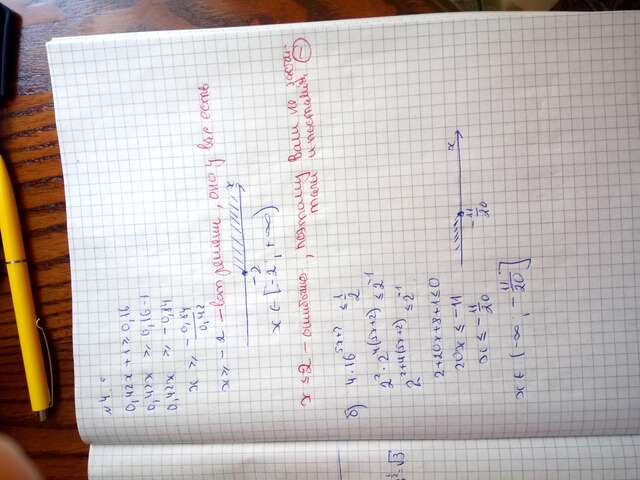 №4.
0,42x+1 ≥ 0,16
0,42x ≥ 0,16-1
0,42x ≥ -0,84
x ≥ -0,84/0,42
x ≥ -2 - вот решение, оно у вас есть
-2 x
x ∈ [-2; +∞)
x ≤ 2 - ошибочно, поэтому Вам не засчи-
тали и поставили ⊖
б) 4·16^(5x+2) ≤ 1/2
2^2·2^(4(5x+2)) ≤ 2^(-1)
2^(2+4(5x+2)) ≤ 2^(-1)
2+20x+8+1≤0
20x ≤ -11
x ≤ -11/20
-11/20 x
x ∈ (-∞; -11/20]
√3